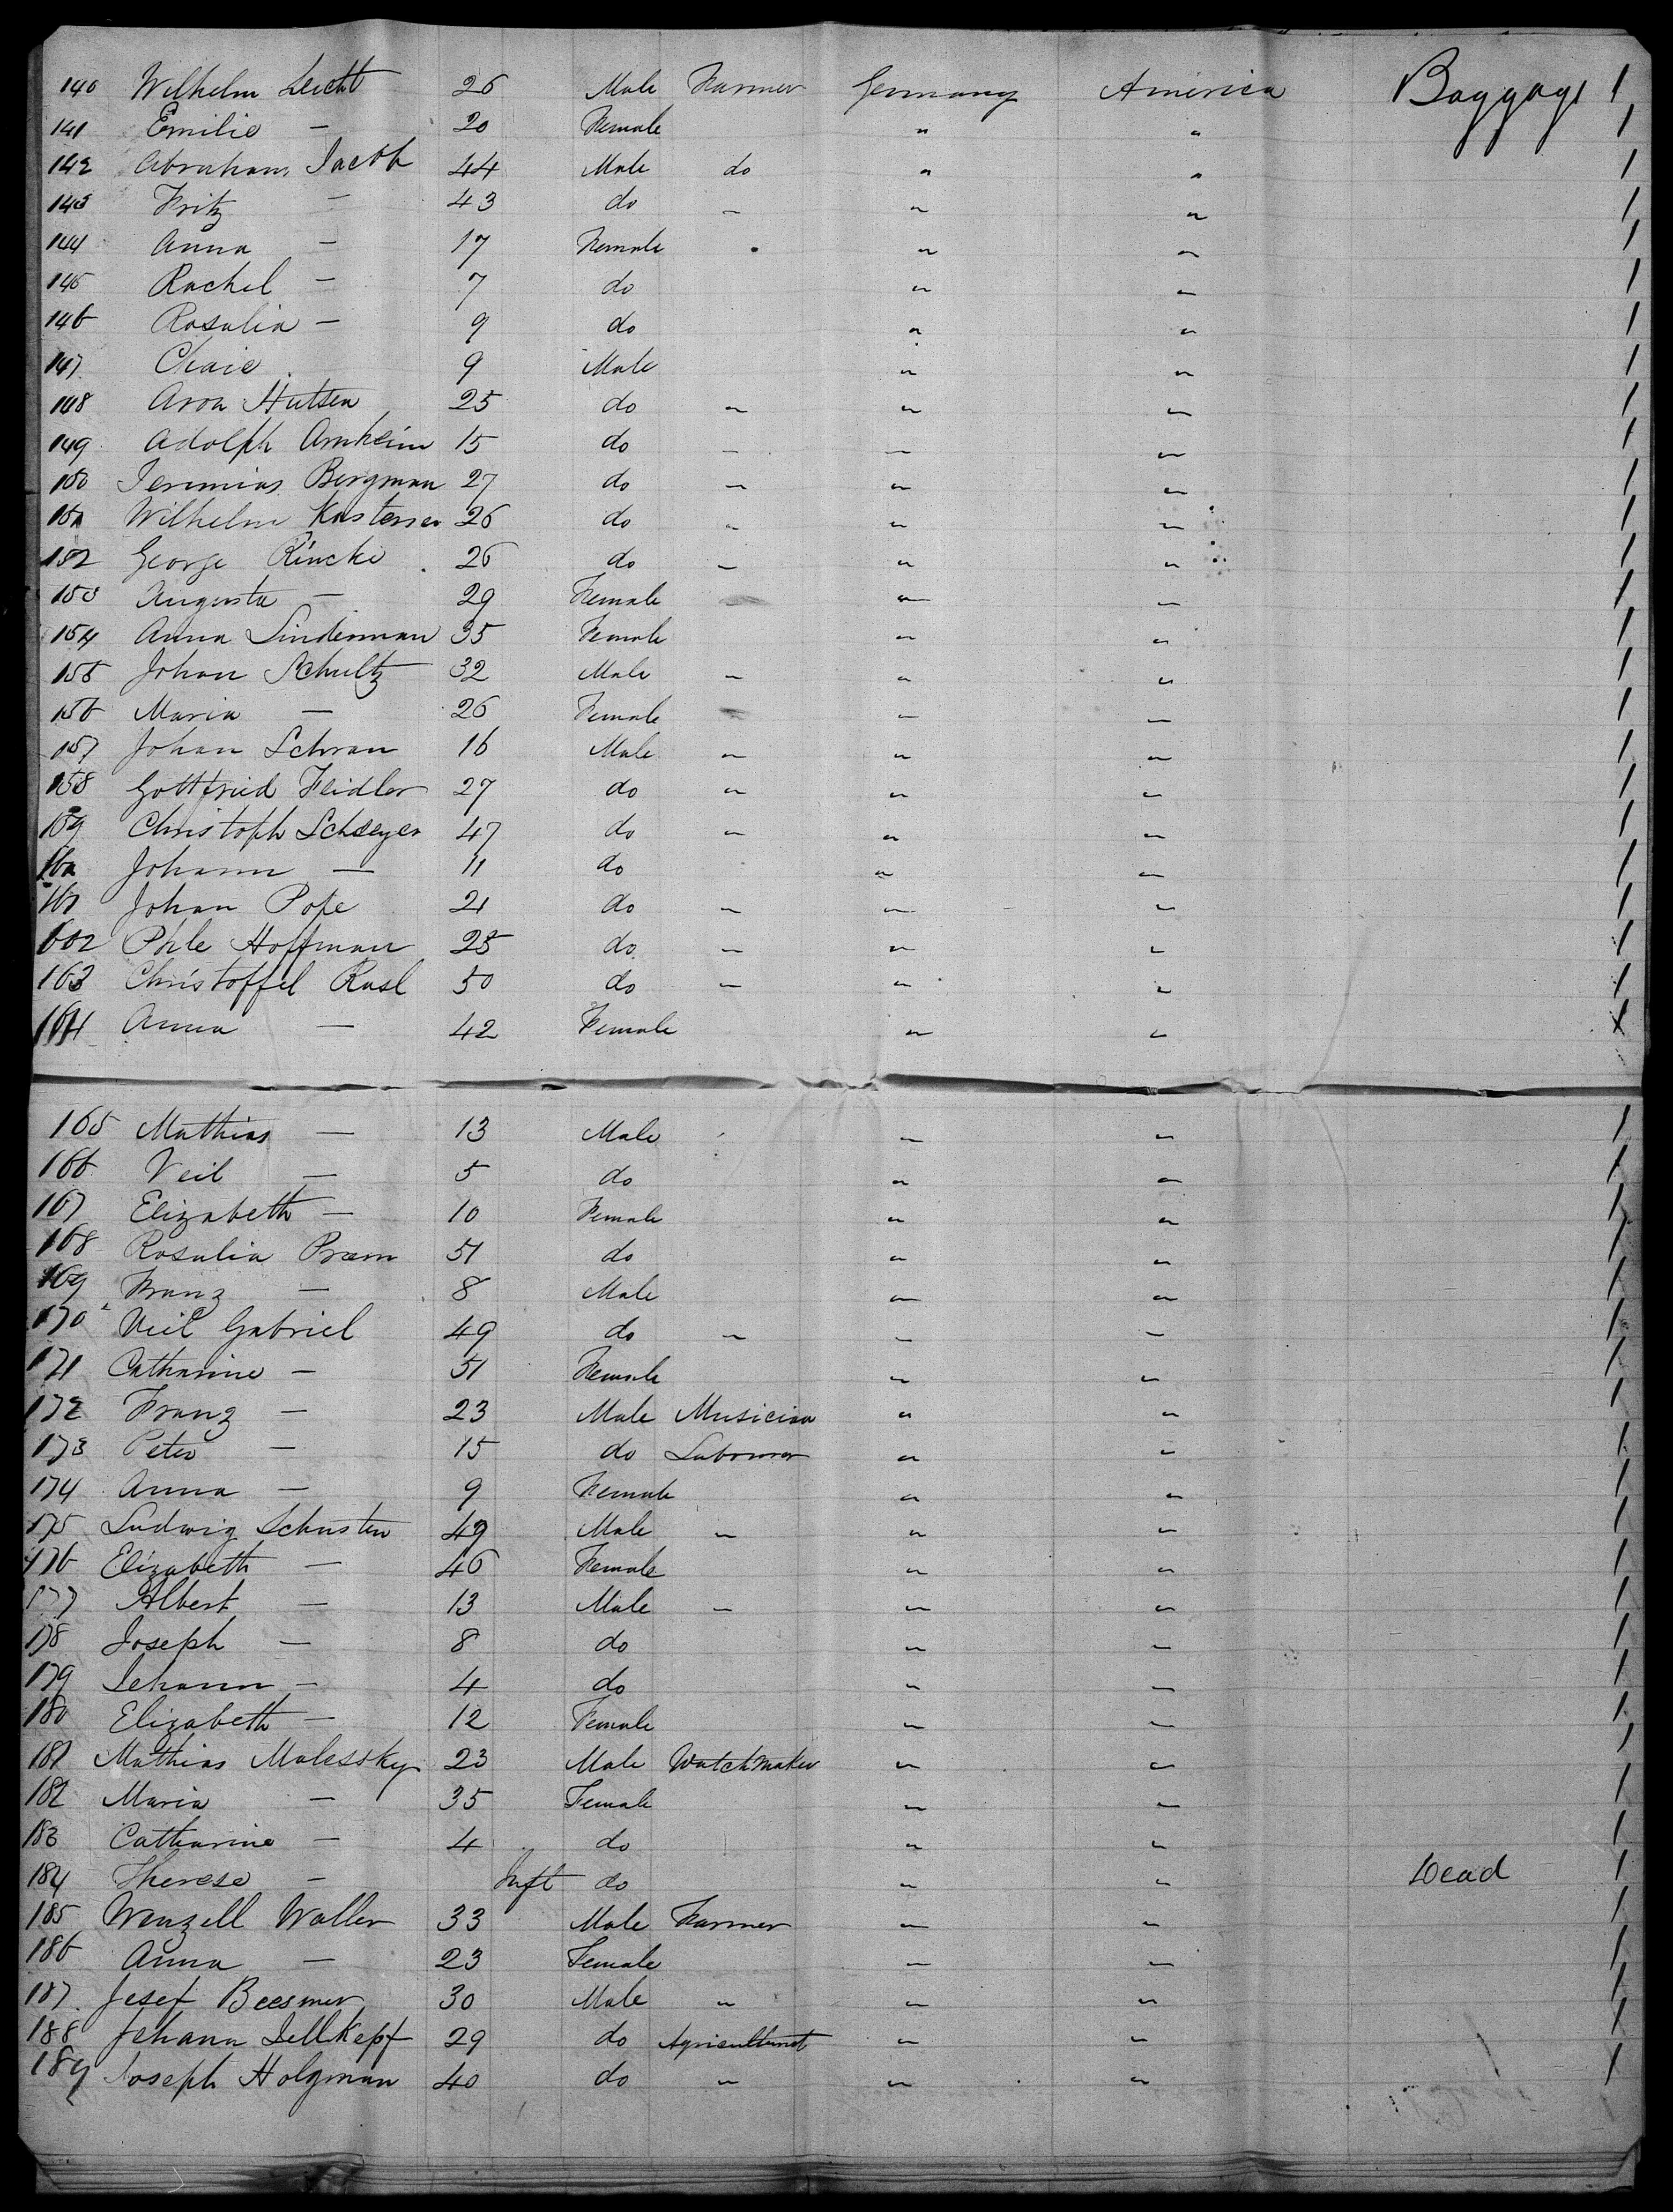 140 Wilhelm Leicht 26 Male Farmer Germany America Baggage 1
141 Emilie — 20 Female " " 1
142 Abraham Jacob 44 Male do " " 1
143 Fritz — 43 do " " " 1
144 Anna — 17 Female " " 1
145 Rachel — 7 do " " 1
146 Rosalia — 9 do " " 1
147 Chaie 9 Male " " 1
148 Aron Hutsen 25 do " " " 1
149 Adolph Arnheim 15 do " " " 1
150 Jeremias Bergman 27 do " " " 1
151 Wilhelm 26 do " " " 1
152 George Rincke 26 do " " " 1
153 Augusta — 29 Female " " 1
154 Anna Linderman 35 Female " " 1
155 Johan Schultz 32 Male " " " 1
156 Maria — 26 Female " " 1
157 Johan Schran 16 Male " " " 1
158 Gottfried Feidler 27 do " " " 1
159 Christoph 47 do " " " 1
160 Johann — 11 do " " 1
161 Johan Pope 21 do " " " 1
162 Phle Hoffman 25 do " " " 1
163 Christoffel Rasl 50 do " " " 1
164 Anna — 42 Female " " 1
165 Mathias — 13 Male " " 1
166 Veil — 5 do " " 1
167 Elizabeth — 10 Female " " 1
168 Rosalia 51 do " " 1
169 Franz — 8 Male " " 1
170 Veil Gabriel 49 do " " " 1
171 Catharine — 51 Female " " 1
172 Franz — 23 Male Musician " " 1
173 Peter — 15 do Labourer " " 1
174 Anna — 9 Female " " 1
175 Ludwig Schuster 49 Male " " " 1
176 Elizabeth — 46 Female " " 1
177 Albert — 13 Male " " " 1
178 Joseph — 8 do " " 1
179 Johann — 4 do " " 1
180 Elizabeth — 12 Female " " 1
181 Mathias Malessky 23 Male Watchmaker " " 1
182 Maria — 35 Female " " 1
183 Catharine — 4 do " " 1
184 Therese — Inft do " " Dead 1
185 Wenzell Waller 33 Male Farmer " " 1
186 Anna — 23 Female " " 1
187 Josef Beesmer 30 Male " " " 1
188 Johann Sellkopf 29 do Agriculturist " " 1
189 Joseph Holzman 40 do " " " 1